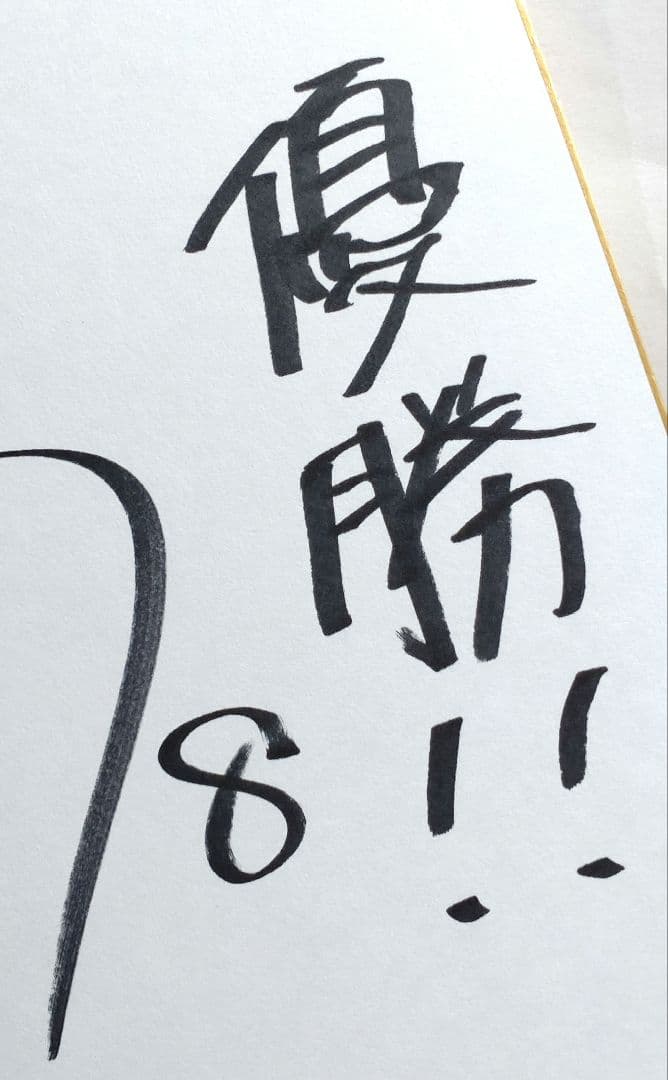 優勝!!
8